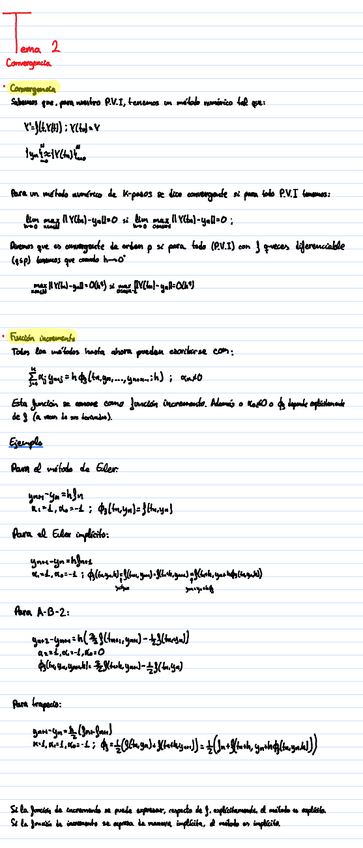 Tema 2
Convergencia
· Convergencia
Sabemos que, para nuestro P.V.I, tenemos un método numérico tal que:
Y'=f(t,Y(t)) ; Y(t₀)=Y
{yₙ}ₙ₌₀ᴺ ≈ {Y(tₙ)}ₙ₌₀ᴺ
Para un método numérico de K-pasos se dice convergente si para todo P.V.I tenemos:
lim h→0 max ||Y(tₙ)-yₙ||=0 si lim h→0 max ||Y(tₙ)-yₙ||=0 ;
que es convergente de orden p si para todo (P.V.I) con f q veces diferenciable
(q≤p) tenemos que cuando h→0⁺
max ||Y(tₙ)-yₙ||=O(hᵖ) si max ||Y(tₙ)-yₙ||=O(hᵖ)
· Función incremento
Todos los métodos hasta ahora pueden escribirse con:
Σ αⱼ yₙ₊ⱼ = h ϕ_f (tₙ,yₙ,..., ;h) ;
Esta función se conoce como función incremento. Además α₀≠0 o ϕ_f depende explícitamente
de f (a veces de sus derivadas).
Ejemplo
Para el método de Euler:
yₙ₊₁-yₙ=hfₙ
α₁=1, α₀=-1 ; ϕ_f(tₙ,yₙ)=f(tₙ,yₙ)
Para el Euler implícito:
yₙ₊₁-yₙ=hfₙ₊₁
α₁=1, α₀=-1 ; ϕ_f(tₙ,yₙ,h)=f(tₙ₊₁,yₙ₊₁)=f(tₙ+h,yₙ₊₁)=f(tₙ+h,yₙ+hϕ_f(tₙ,yₙ,h))
Para A-B-2:
yₙ₊₂-yₙ₊₁=h(3/2 f(tₙ₊₁,yₙ₊₁)-1/2 f(tₙ,yₙ))
α₂=1, α₁=-1, α₀=0
ϕ_f(tₙ,yₙ,yₙ₊₁,h)=3/2 f(tₙ+h,yₙ₊₁)-1/2 f(tₙ,yₙ)
Para trapecio:
yₙ₊₁-yₙ=h/2 (fₙ+fₙ₊₁)
K=1, α₁=1, α₀=-1 ; ϕ_f=1/2(f(tₙ,yₙ)+f(tₙ+h,yₙ₊₁))=1/2(fₙ+f(tₙ+h,yₙ+hϕ_f(tₙ,yₙ,h)))
Si la función de incremento se puede expresar, respecto de f, explícitamente, el método es explícito.
Si la función de incremento se expresa de manera implícita, el método es implícito.